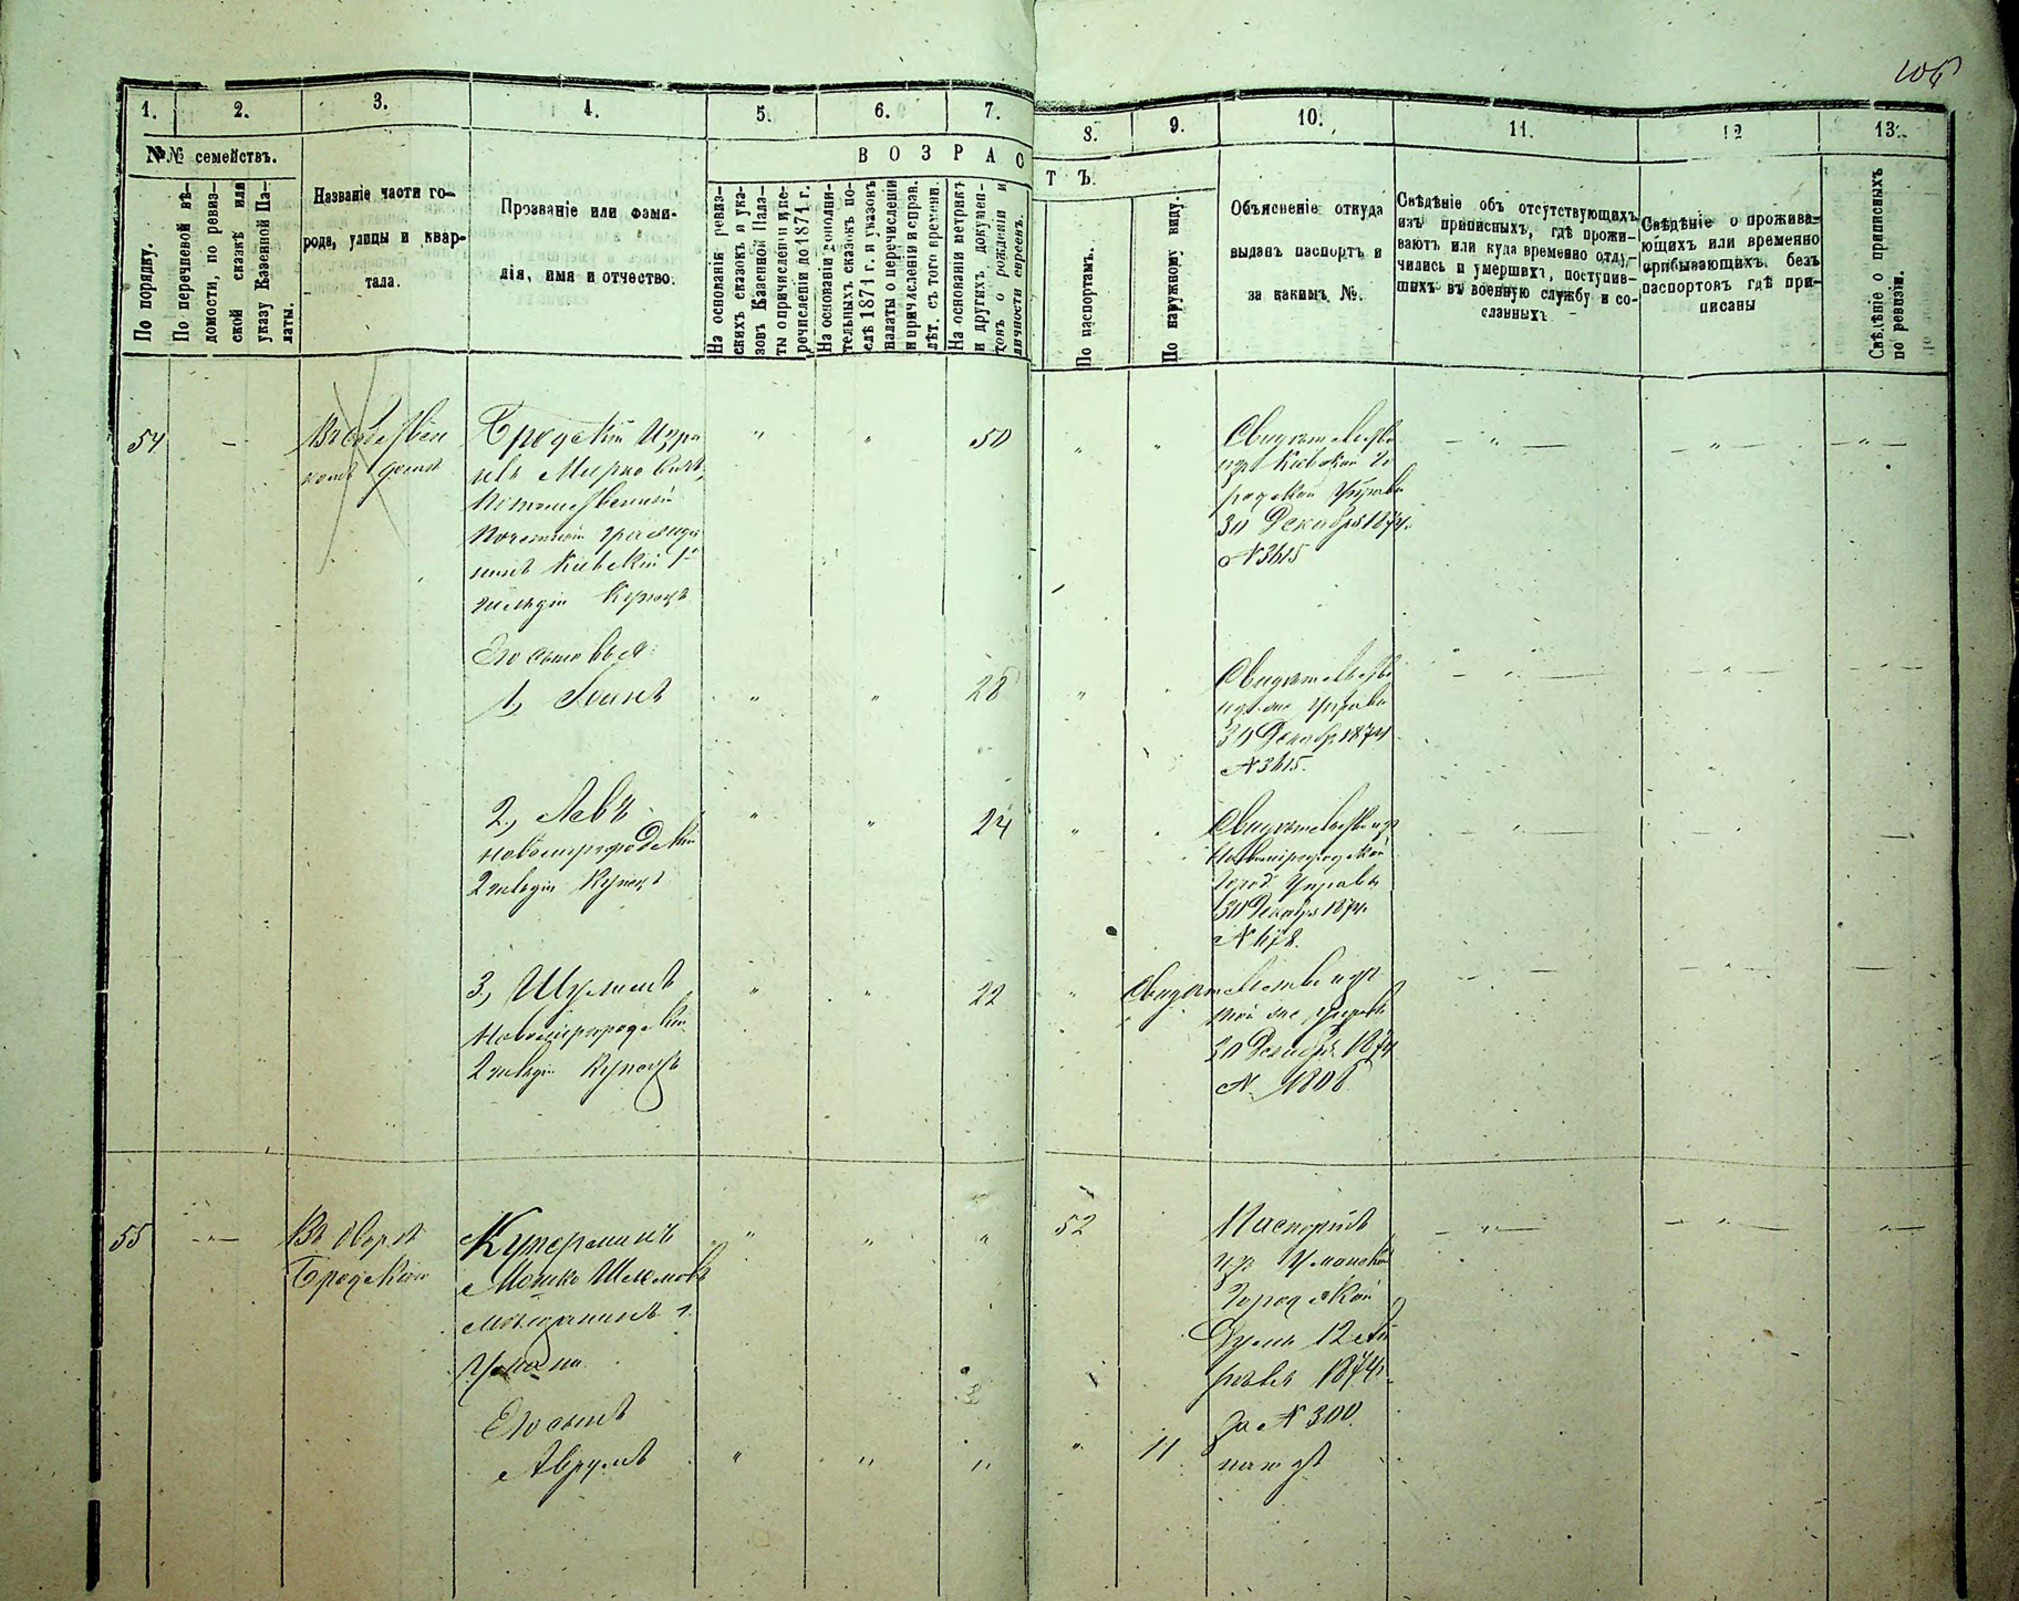 106
1. 2. 3. 4. 5. 6. 7. 8. 9. 10. 11. 12 13.
№№ семействъ.
По порядку.
По перечневой вѣ-
домости, по ревиз-
ской сказкѣ или
указу Казенной Па-
латы.
Названіе части го-
рода, улицы и квар-
тала.
Прозваніе или фами-
лія, имя и отчество.
ВОЗРАСТЪ.
На основаніи ревиз-
скихъ сказокъ и ука-
зовъ Казенной Пала-
ты о причисленіи и пе-
речисленіи до 1871 г.
На основаніи дополни-
тельныхъ сказокъ по-
слѣ 1871 г. и указовъ
палаты о перечисленіи
и причисленіи и справ.
лѣт. съ того времени.
На основаніи метрикъ
и другихъ докумен-
товъ о рожденіи и
личности евреевъ.
По паспортамъ.
По наружному виду.
Объясненіе откуда
выданъ паспортъ и
за какимъ №.
Свѣдѣніе объ отсутствующихъ
изъ приписныхъ, гдѣ прожи-
ваютъ или куда временно отлу-
чились и умершихъ, поступив-
шихъ въ военную службу и со-
сланныхъ
Свѣдѣніе о прожива-
ющихъ или временно
прибывающихъ безъ
паспортовъ гдѣ при-
писаны
Свѣдѣніе о приписныхъ
по ревизіи.
54 — Въ собствен
номъ домѣ
Бродскій Изра
иль Мирковичъ
Потомственный
Почетный гражда
нинъ Кіевскій 1й
гильдіи Купецъ
" " 50 " "
Свидѣтельство
изъ Кіевской Го
родской Управы
30 Декабря 1874г.
№ 3615
Его сыновья
1, " " 28 "
Свидѣтельство
изъ Управы
30 Декабр. 1874
№ 3615.
2, Левъ
Новомиргородскій
2 гильдіи Купецъ
" " 24 "
Свидѣтельство изъ
Новомиргородской
Город. Управы
30 Декабря 1874г.
№ 678.
3, Шулимъ
Новомиргородскій
2 гильдіи Купецъ
" " 22 "
Свидѣтельство изъ
той же Управы
30 Декабря 1874
№ 1808
55 — Въ дворѣ
Бродскаго
Куперманъ
Мошко Шлемовъ
мѣщанинъ г.
Умани
" " " 52
Паспортъ
изъ Уманской
Городской
Думы 12
1874г.
за № 300
Его сынъ
Аврумъ
" " " " 11